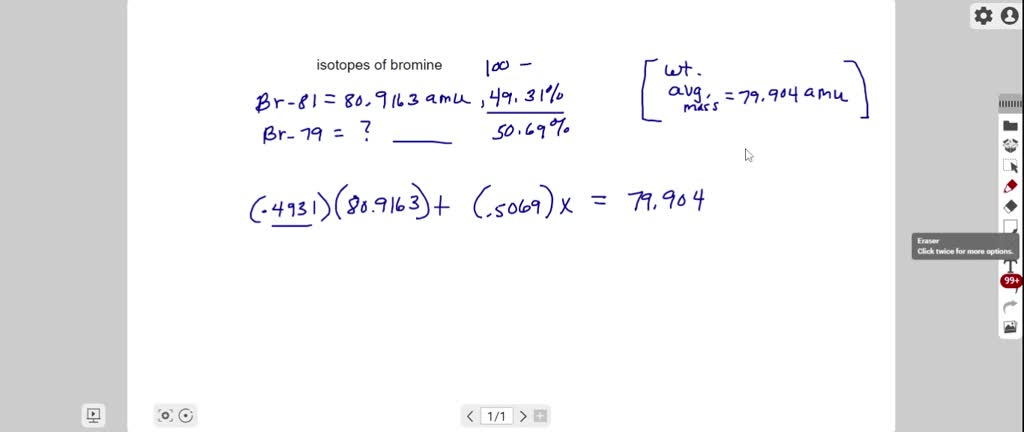 isotopes of bromine 100 -
Br-81 = 80.9163 amu, 49.31%
Br-79 = ? ____ 50.69%
[wt. avg. mass = 79.904 amu]
(.4931)(80.9163) + (.5069)x = 79.904
Eraser
Click twice for more options.
99+
1/1